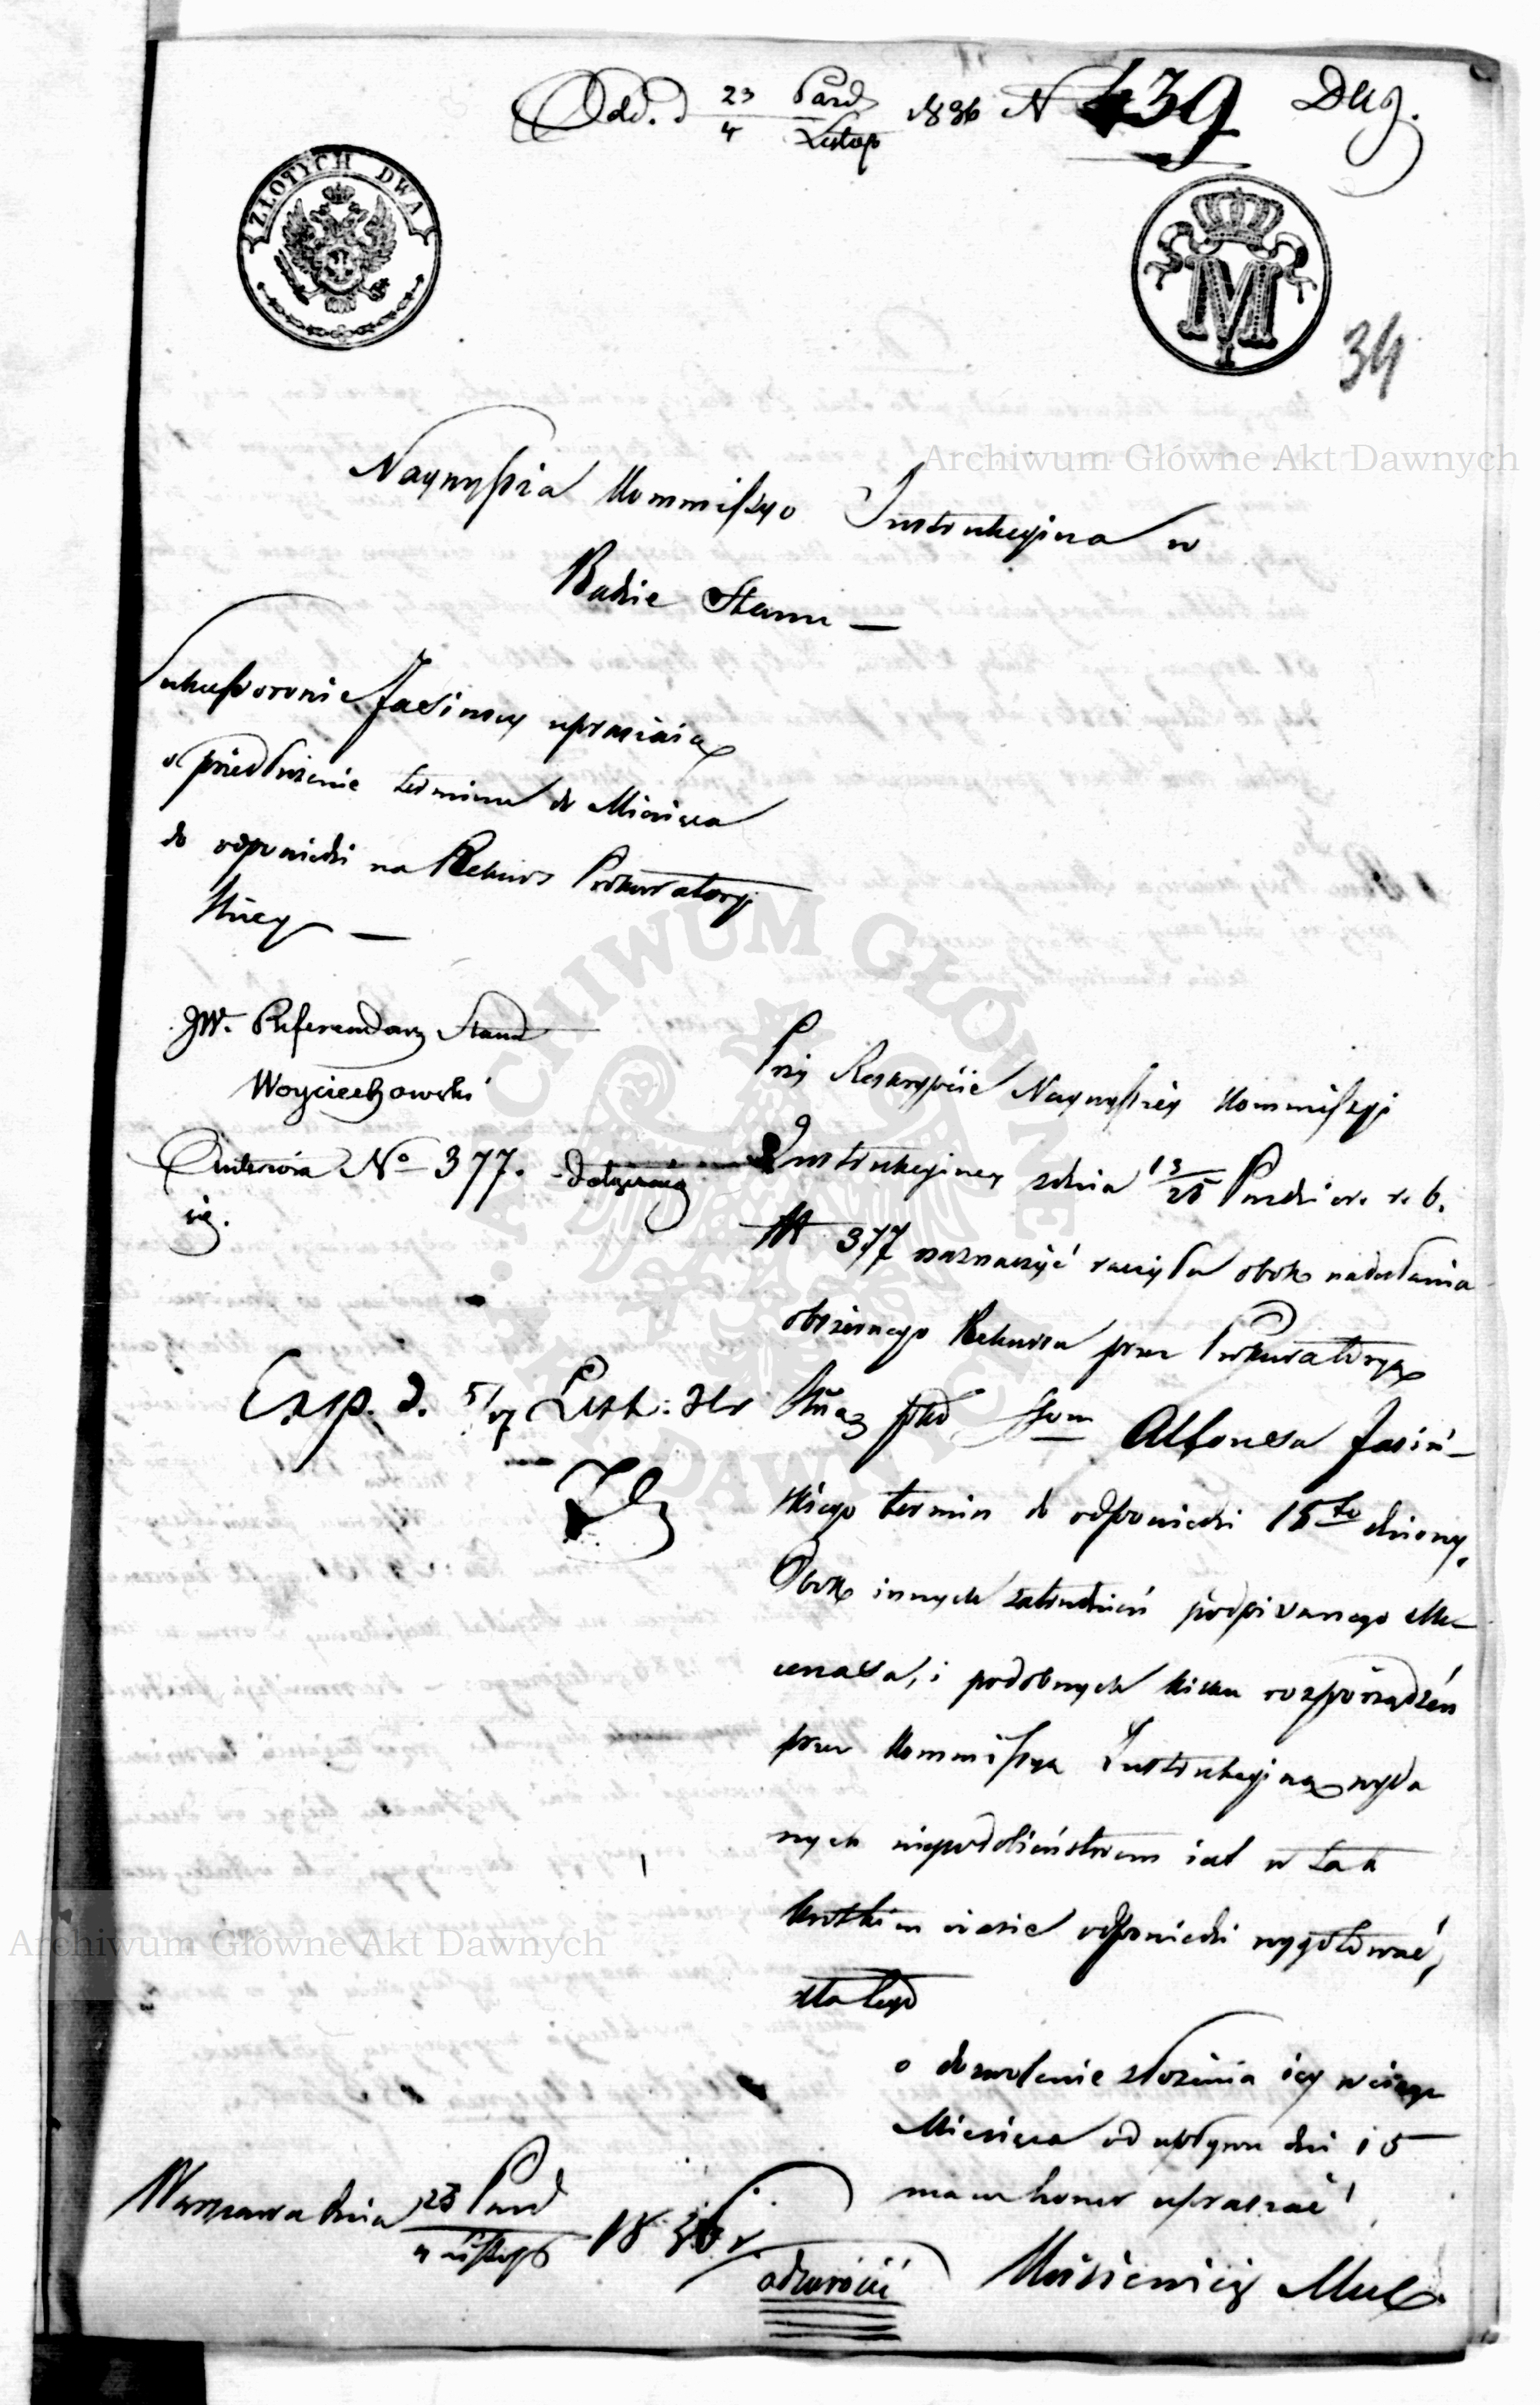 Odd. d 23/4 Pazd/Listop 1836 N 439 Duż.
ZŁOTYCH DWA
M
34
Archiwum Główne Akt Dawnych
Naywyższa Kommissyo Instrukcyina w
Radzie Stanu —
Sukcessorowie Jasińscy upraszaią
o przedłużenie terminu do Miesiąca
do odpowiedzi na Rekurs Prokuratoryi
JW. Referendarz Stanu
Woyciechowski
N° 377. Dotycząca
się.
Przy Reskrypcie Naywyższey Kommissyi
Instrukcyiney z dnia 13/25 Pazdzier. r. b.
N 377 naznaczyć raczyła obok nadesłania
obszernego Rekursu przez Prokuratoryą
Exp. d. 5/17 List: 36r
Alfonsa Jasiń-
skiego termin do odpowiedzi 15to dniowy.
Obok innych zatrudnień podpisanego Me-
cenasa, i podobnych kilku rozporządzeń
przez Kommissyą Instrukcyiną wyda
nych niepodobieństwem iest w tak
krótkim czasie odpowiedzi wygotować,
dla tego
Archiwum Główne Akt Dawnych
o dozwolenie złożenia iey w ciągu
Miesiąca od upływu dni 15
mam honor upraszać
Warszawa dnia 23 Pazd/4 Listop 1836 r.
odwrócić
ARCHIWUM GŁÓWNE AKT DAWNYCH